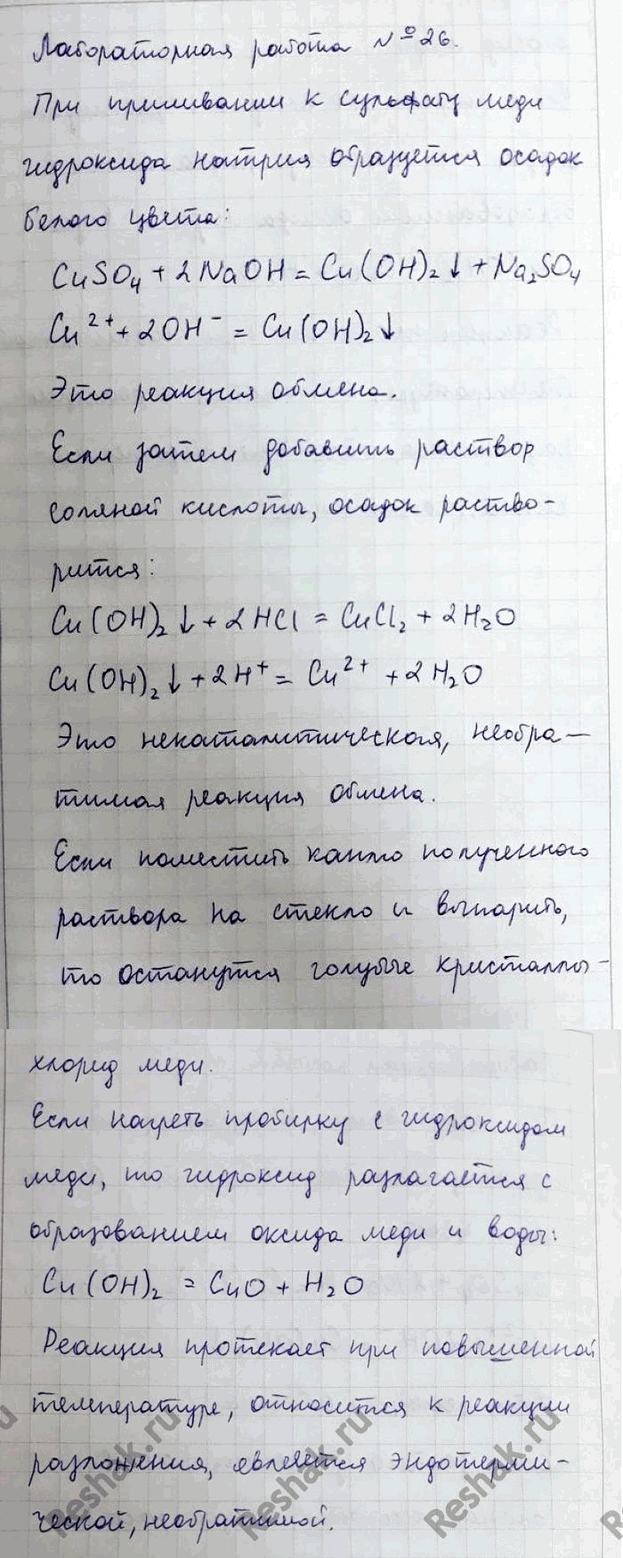 Лабораторная работа №26.
При приливании к сульфату меди
гидроксида натрия образуется осадок
белого цвета:
CuSO₄ + 2NaOH = Cu(OH)₂↓ + Na₂SO₄
Cu²⁺ + 2OH⁻ = Cu(OH)₂↓
Это реакция обмена.
Если затем добавить раствор
соляной кислоты, осадок раство-
рится:
Cu(OH)₂↓ + 2HCl = CuCl₂ + 2H₂O
Cu(OH)₂↓ + 2H⁺ = Cu²⁺ + 2H₂O
Это некаталитическая, необра-
тимая реакция обмена.
Если поместить каплю полученного
раствора на стекло и выпарить,
то останутся голубые кристаллы-
хлорид меди.
Если нагреть пробирку с гидроксидом
меди, то гидроксид разлагается с
образованием оксида меди и воды:
Cu(OH)₂ = CuO + H₂O
Реакция протекает при повышенной
температуре, относится к реакции
разложения, является эндотерми-
ческой, необратимой.
Reshak.ru
Reshak.ru
Reshak.ru